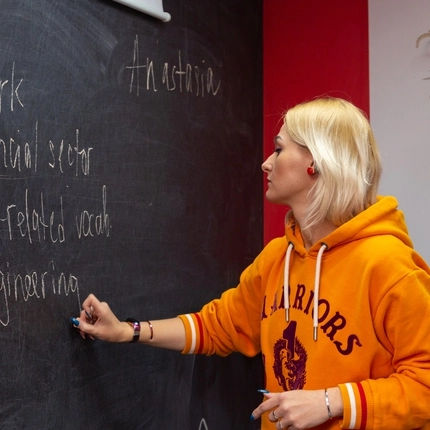 Anastasia
rk
ncial sector
-related vocab.
gineering
WARRIORS
1